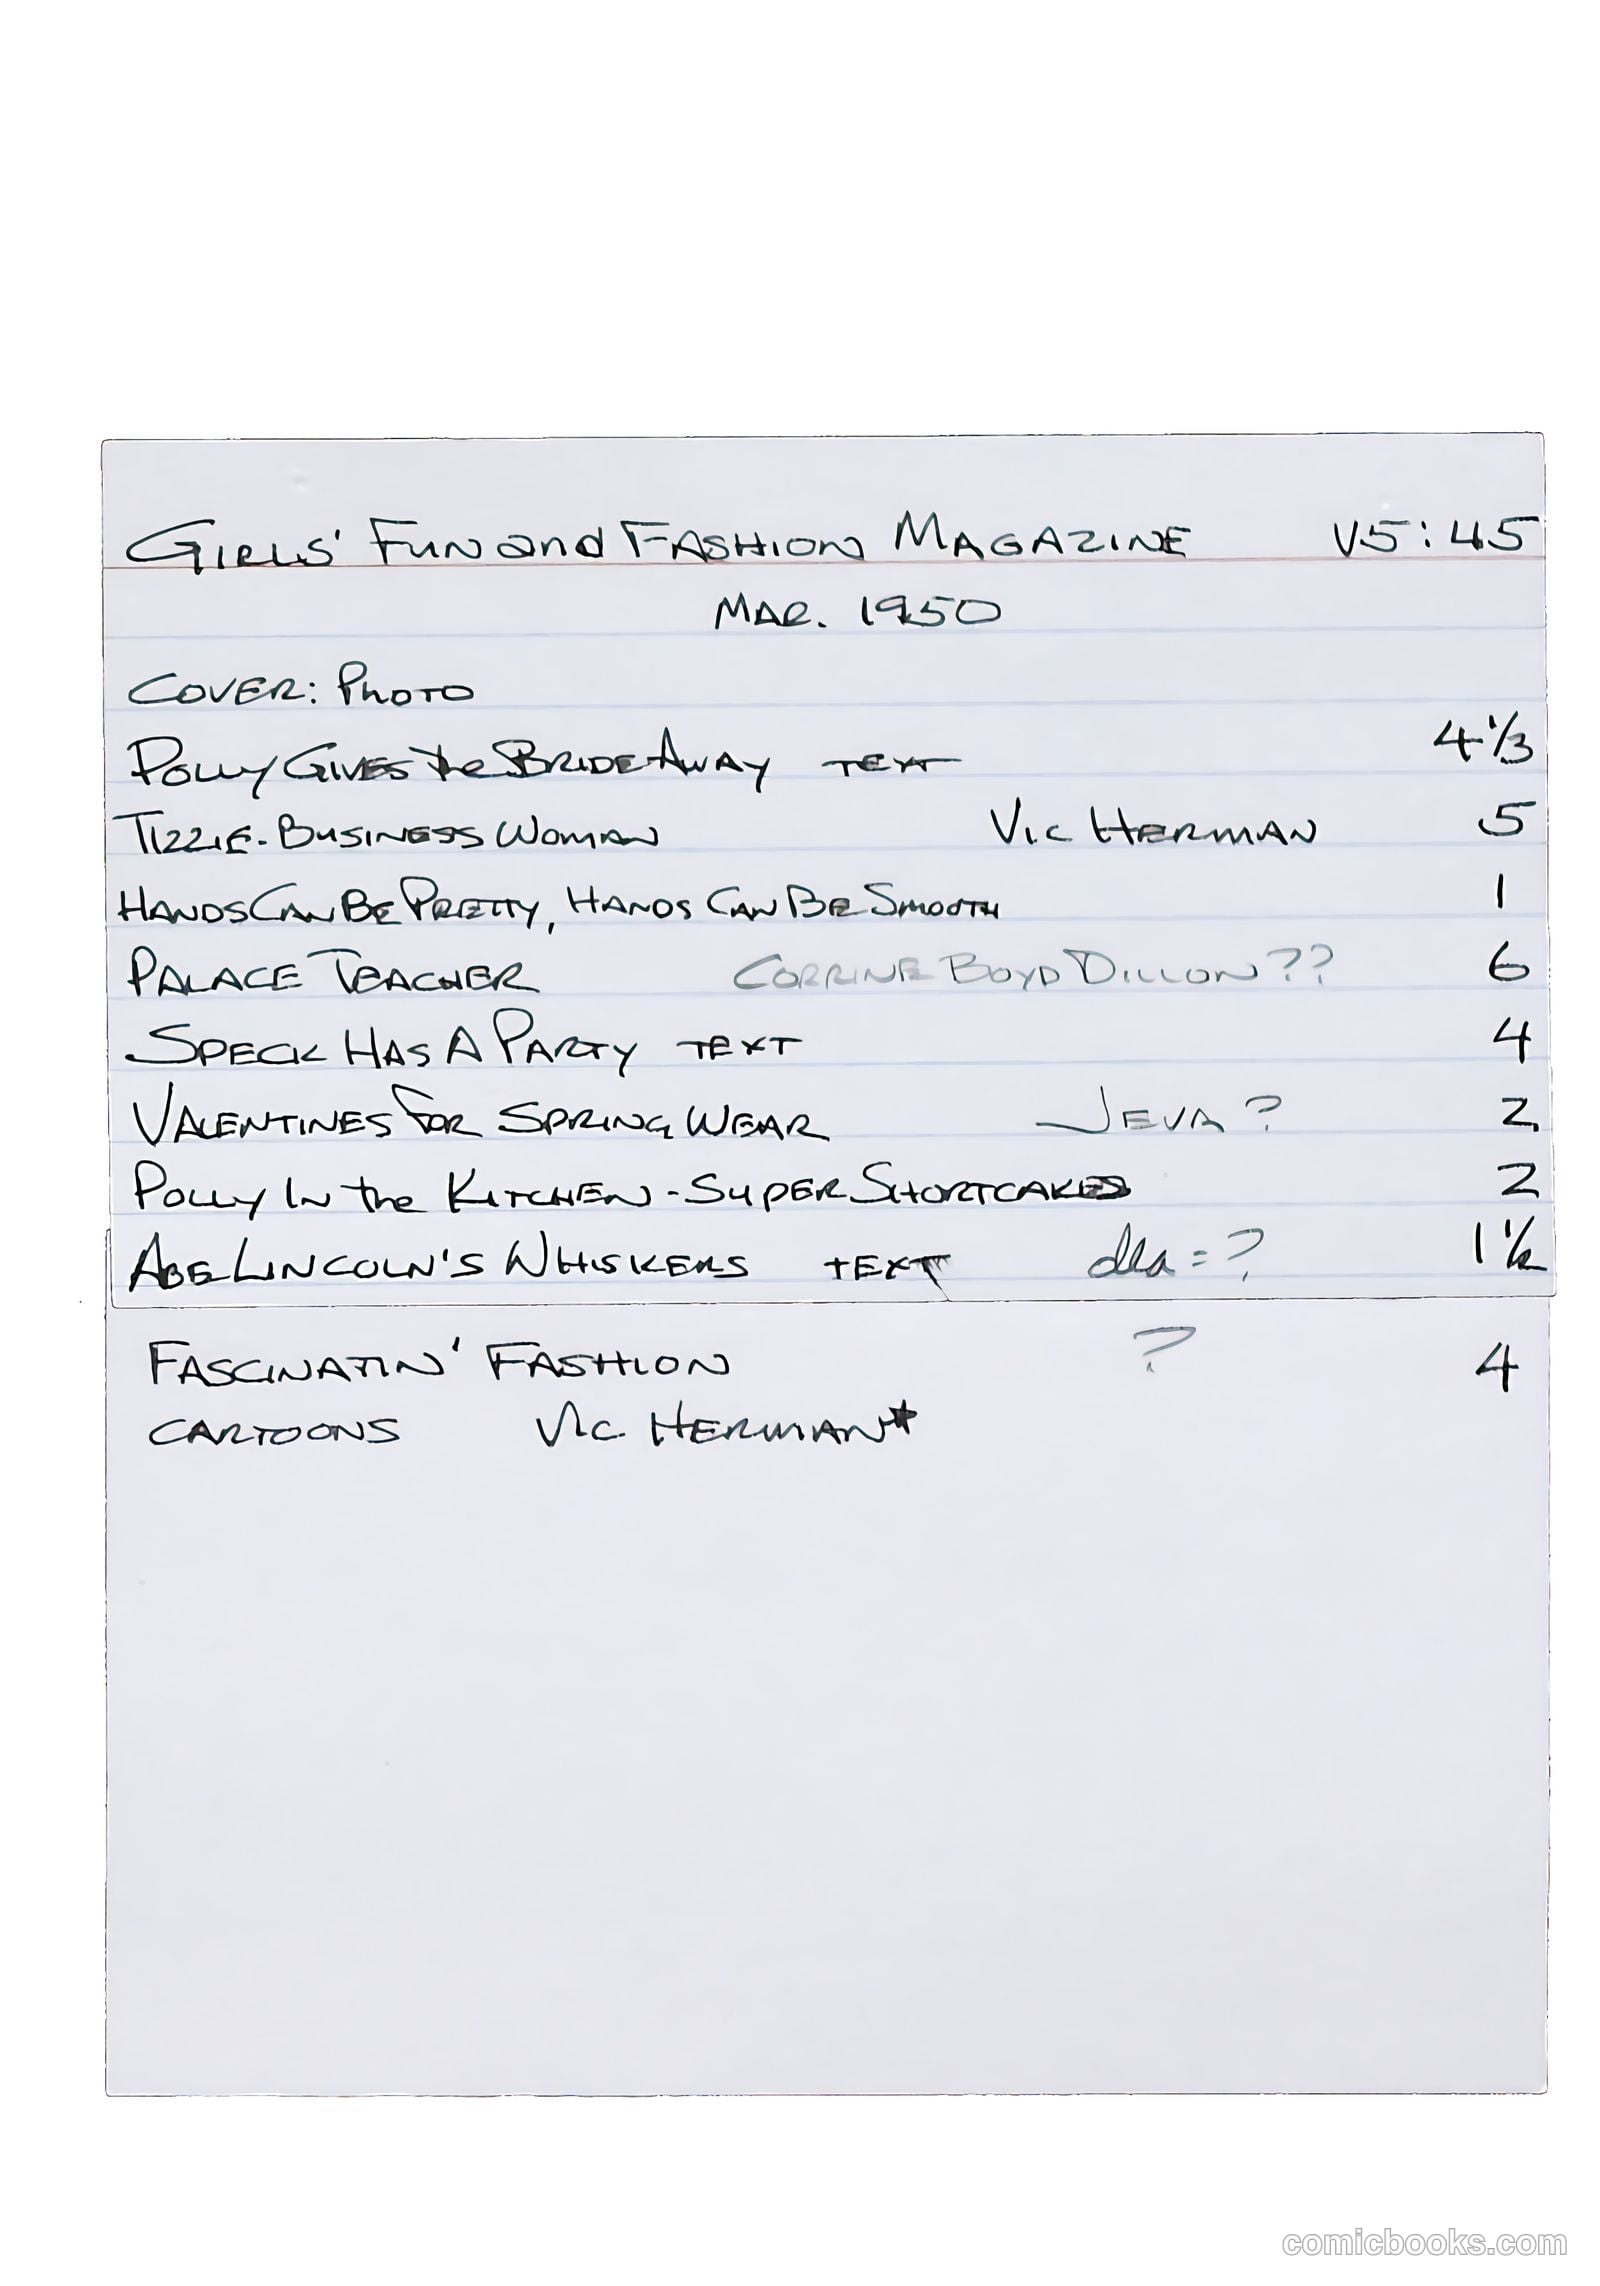 GIRLS' FUN and FASHION MAGAZINE V5:45
MAR. 1950
COVER: PHOTO
POLLY GIVES the BRIDE AWAY TEXT 4 1/3
TIZZIE-BUSINESS WOMAN VIC HERMAN 5
HANDS CAN BE PRETTY, HANDS CAN BE SMOOTH 1
PALACE TEACHER CORRINE BOYD DILLON?? 6
SPECK HAS A PARTY TEXT 4
VALENTINES FOR SPRING WEAR JEVA? 2
POLLY IN the KITCHEN-SUPER SHORTCAKES 2
ABE LINCOLN'S WHISKERS TEXT = ?
FASCINATIN' FASHION ? 4
CARTOONS VIC HERMAN*
comicbooks.com